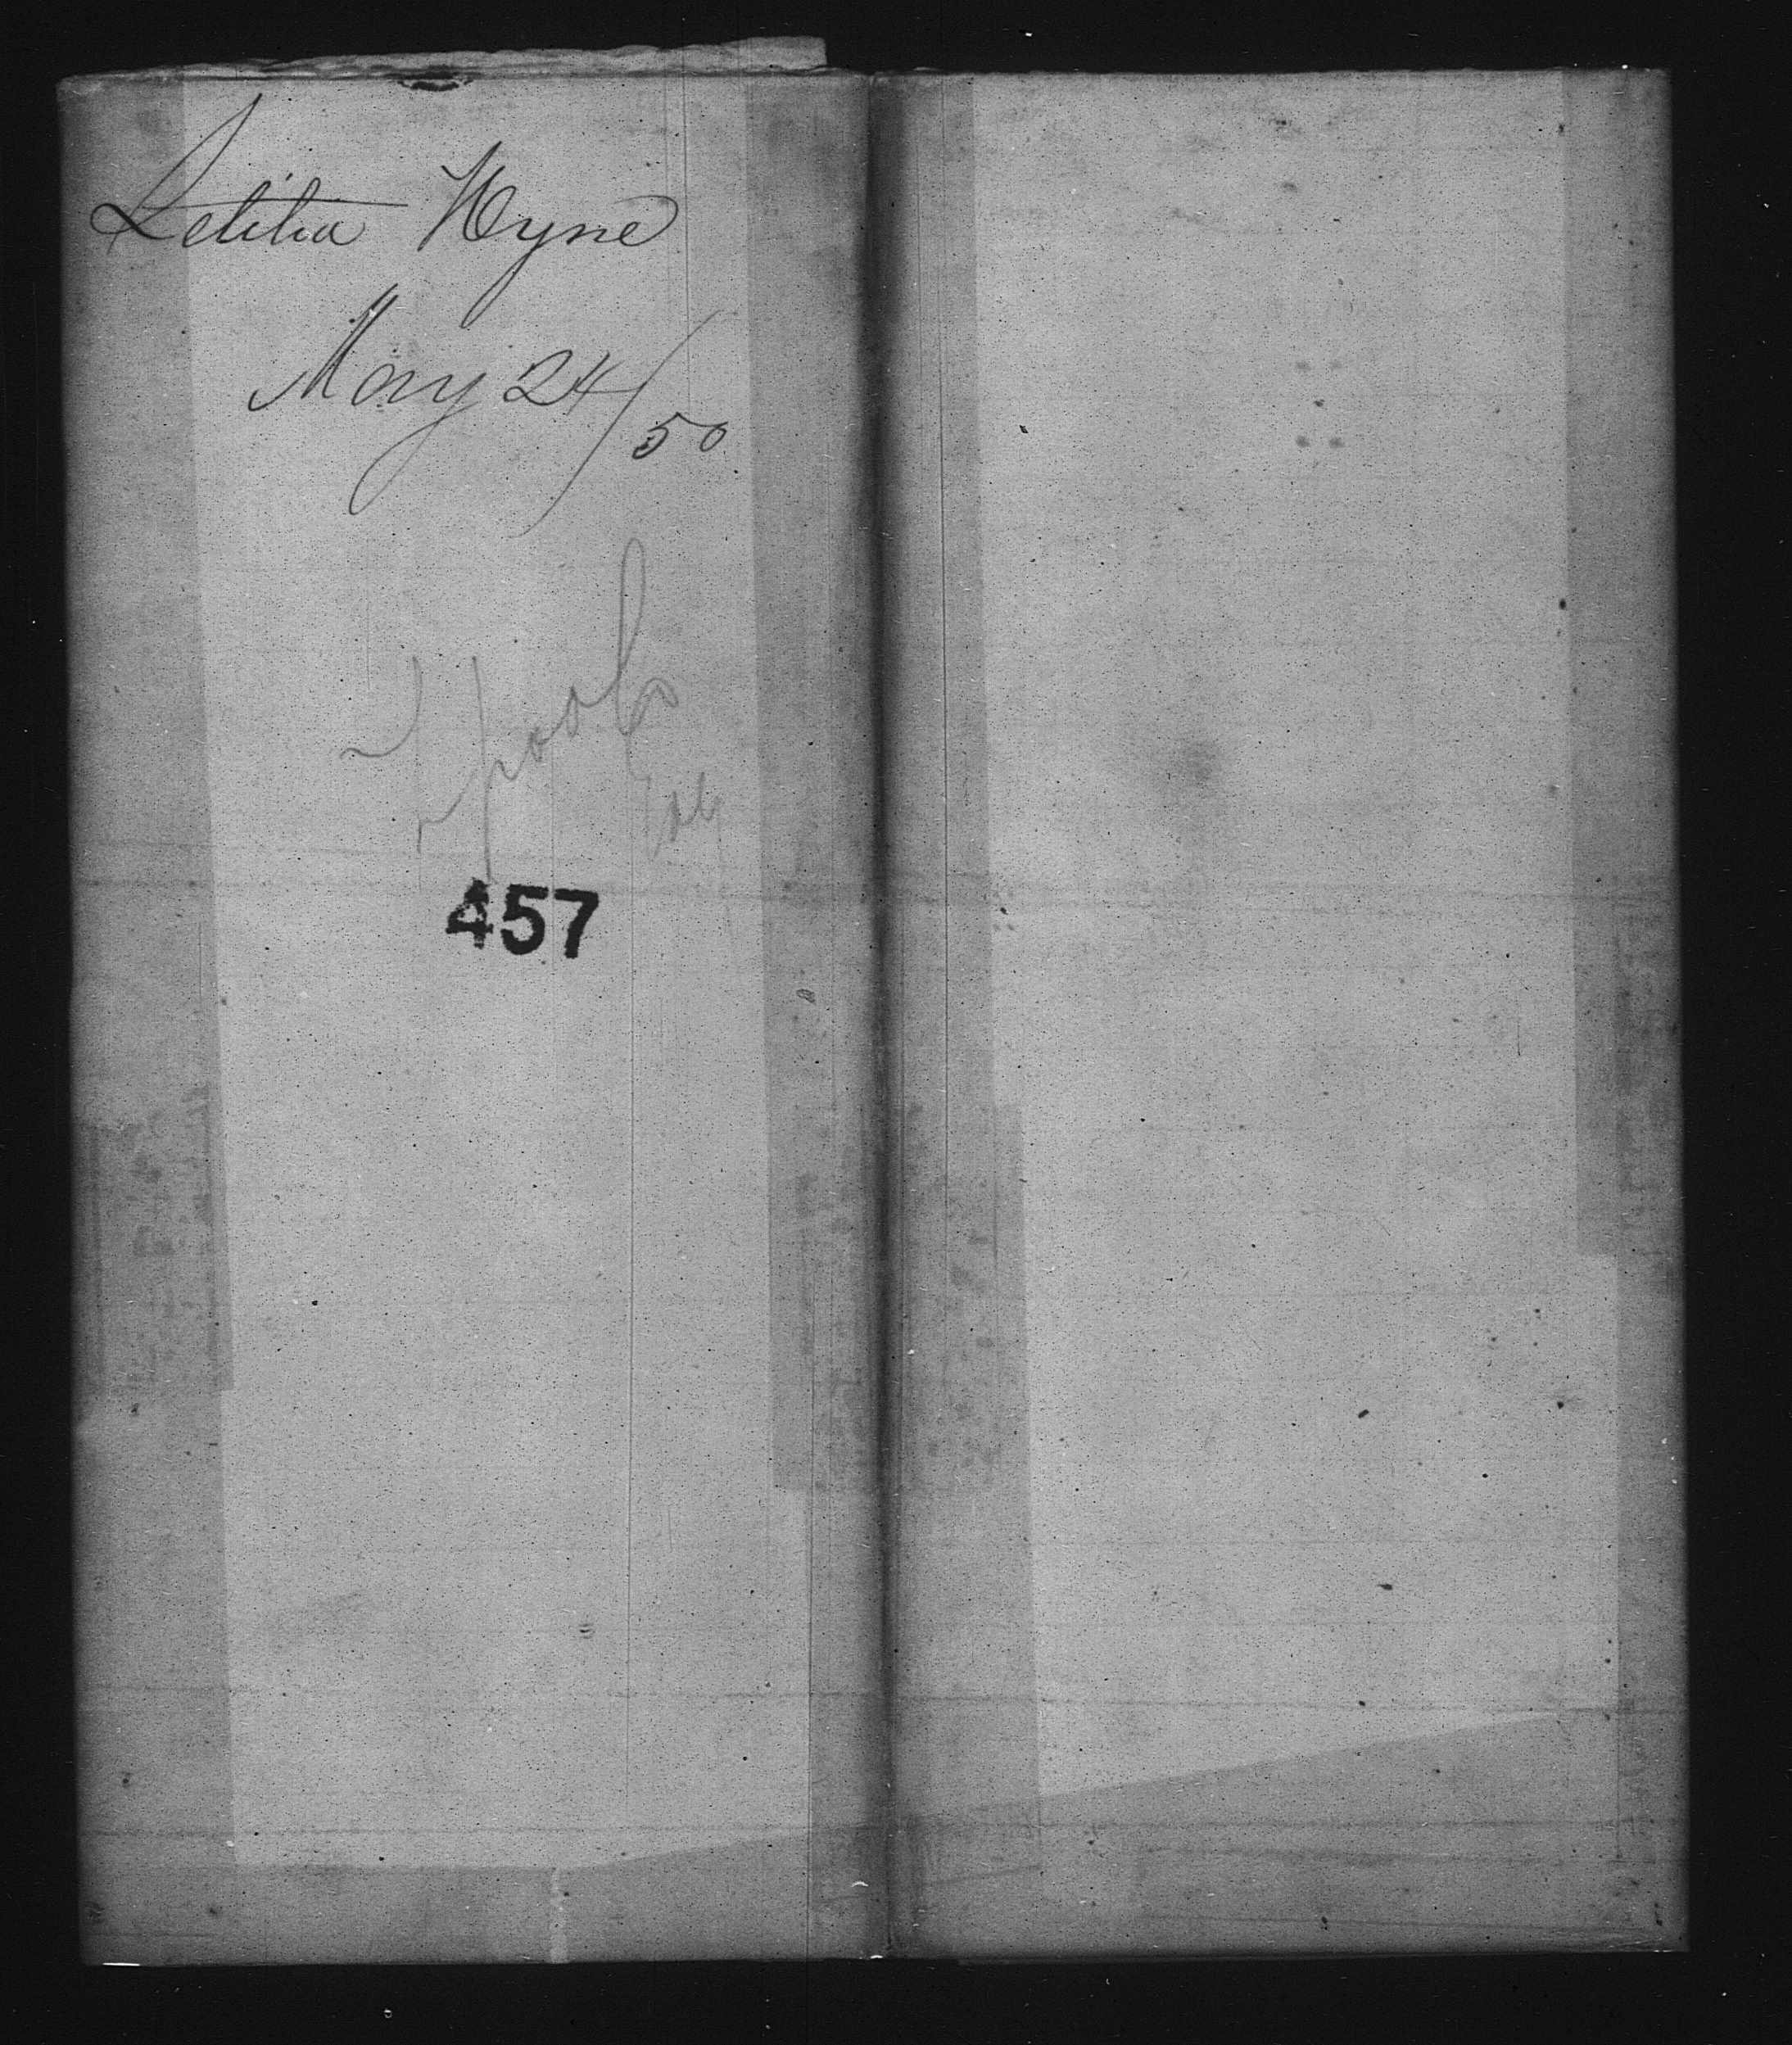 Letitia Hyne
May 24/50
457